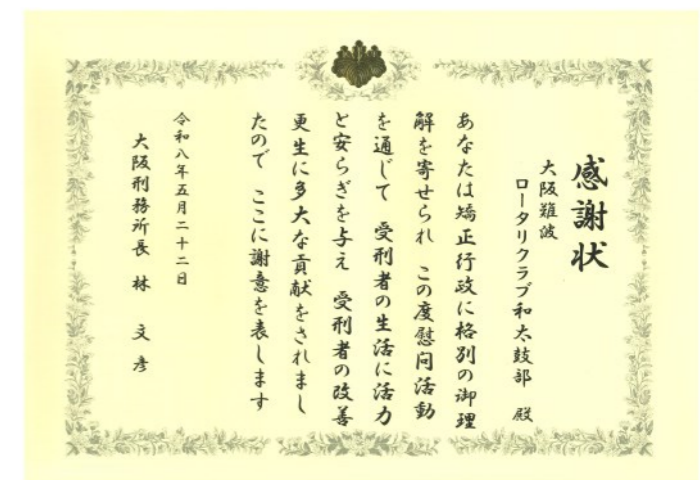 感謝状
大阪難波
ロータリクラブ和太鼓部 殿
あなたは矯正行政に格別の御理
解を寄せられ この度慰問活動
を通じて 受刑者の生活に活力
と安らぎを与え 受刑者の改善
更生に多大な貢献をされまし
たので ここに謝意を表します
令和八年五月二十二日
大阪刑務所長 林 文彦